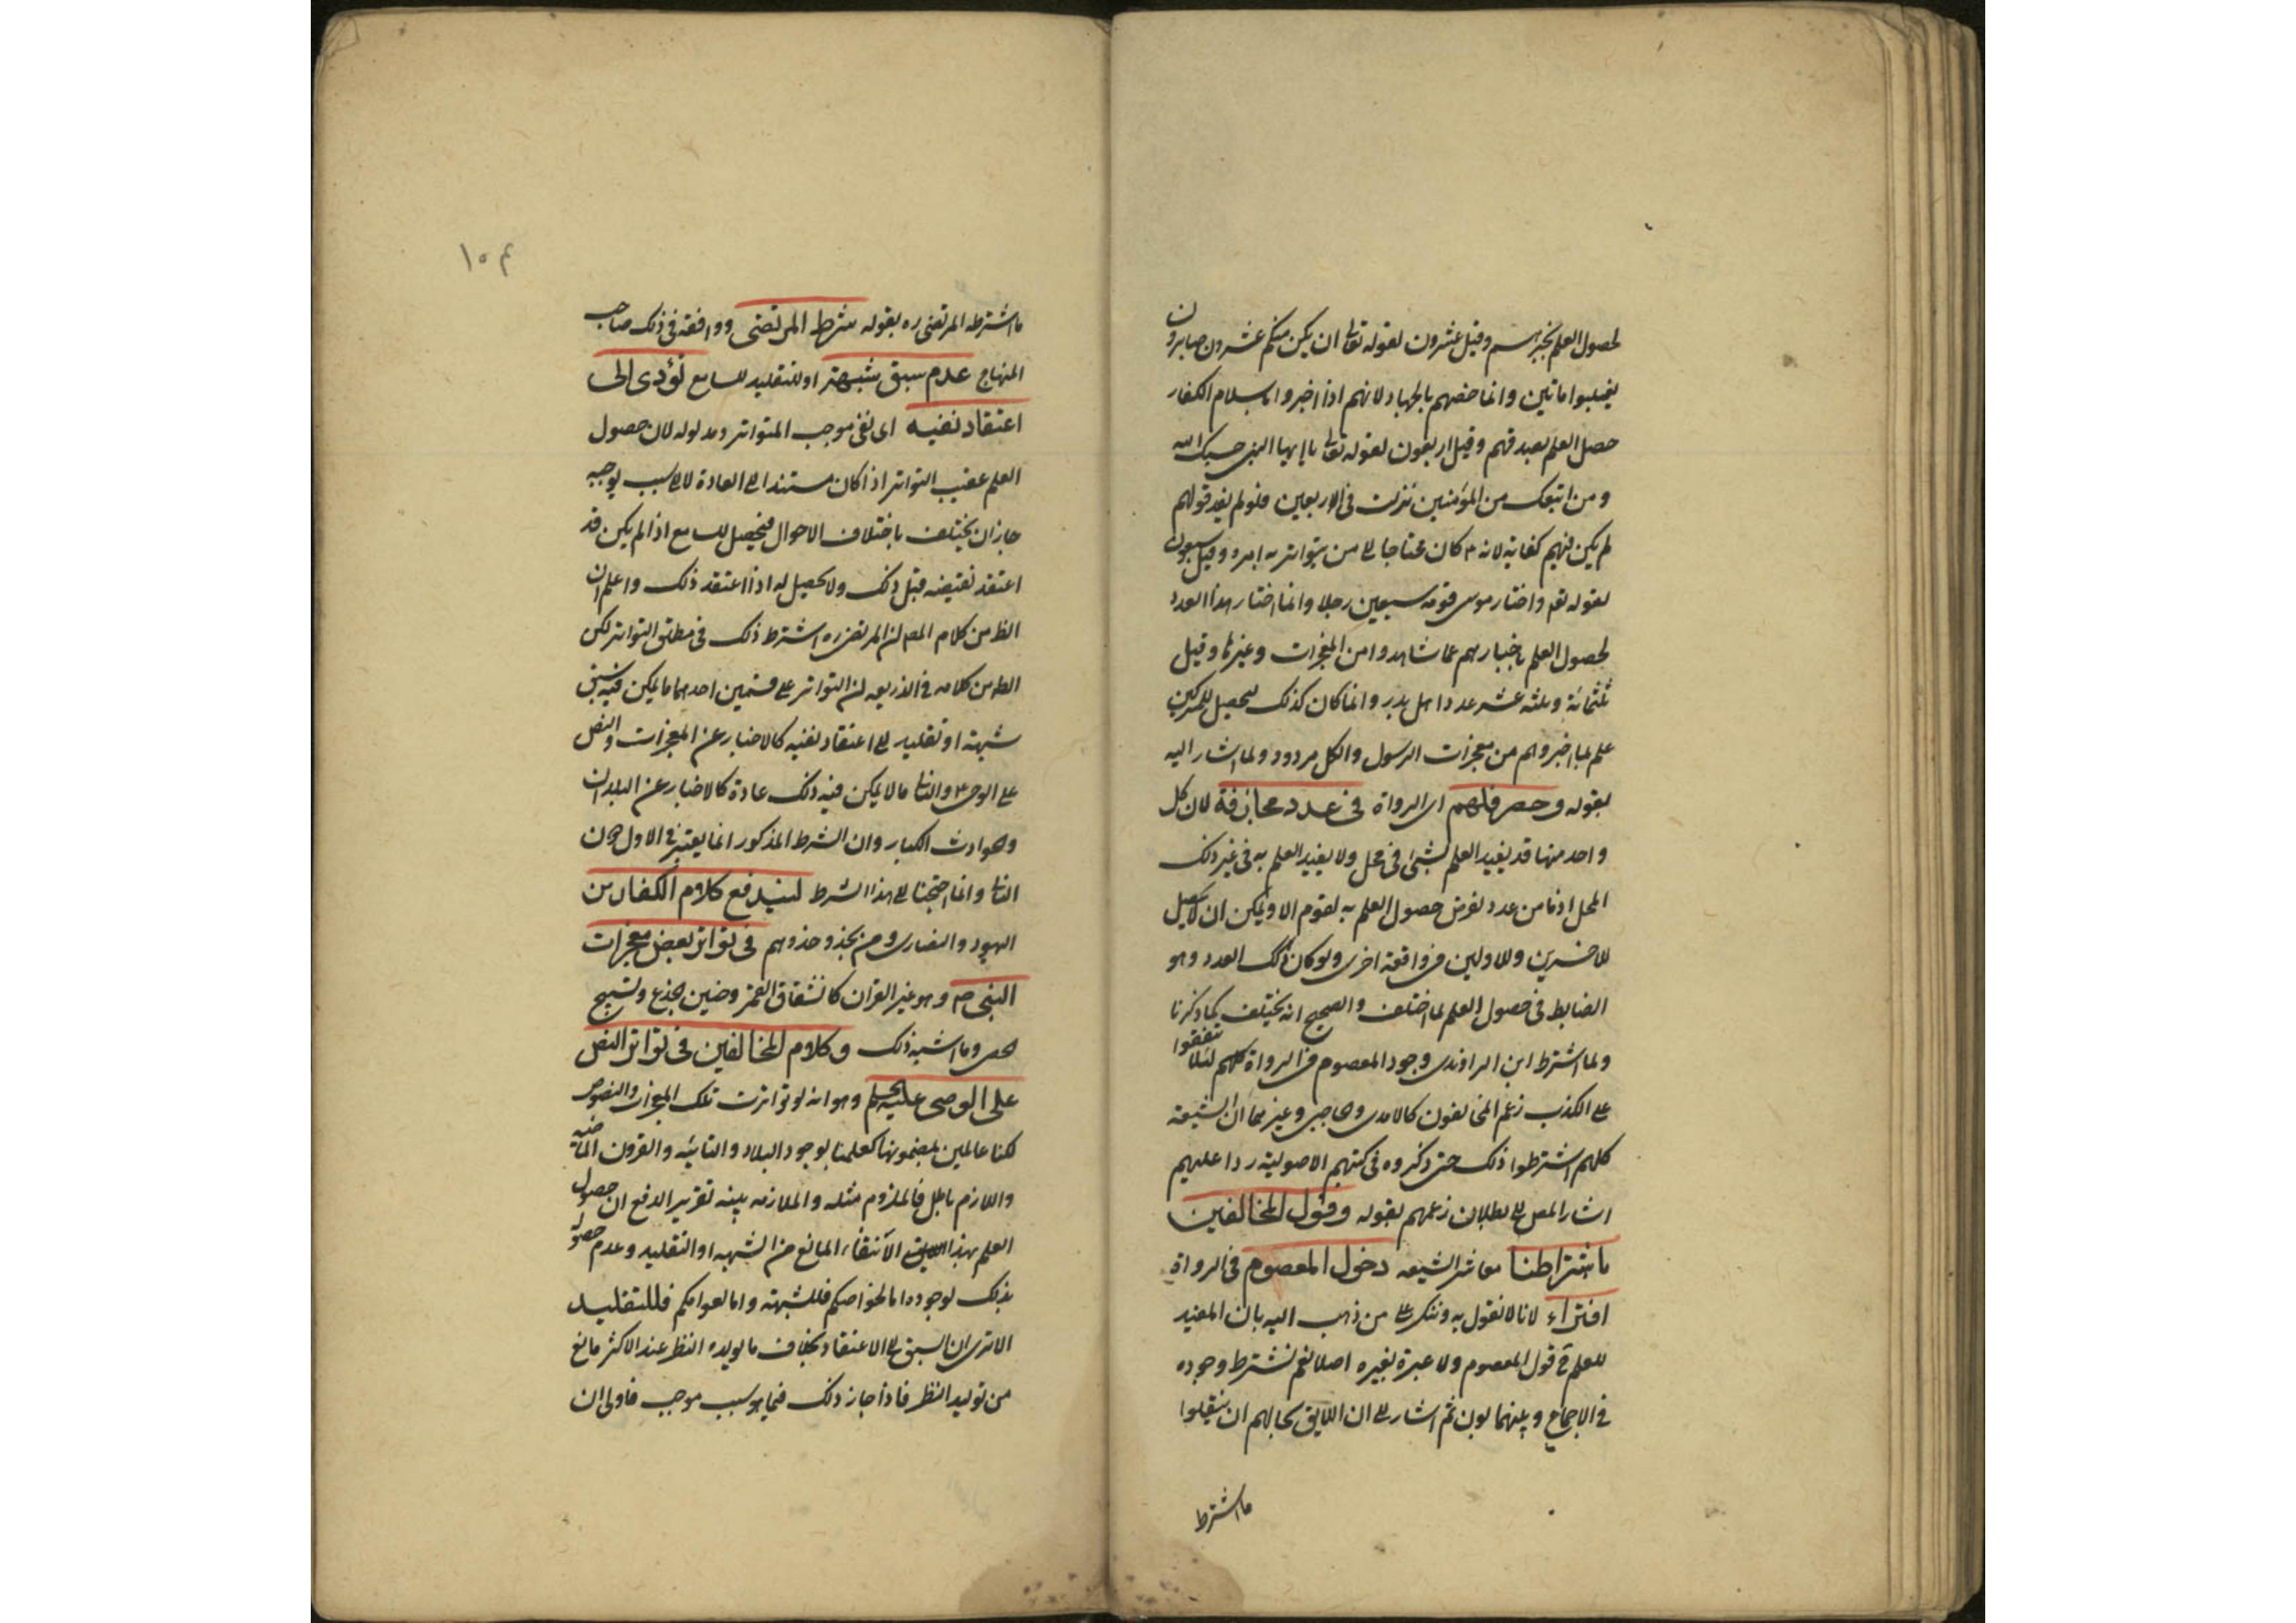 لحصول العلم بخبرهم وقيل عشرون لقوله تعالى ان يكن منكم عشرون صابرون
يغلبوا ماتين وانما خصهم بالجهاد لانهم اذا اخبروا باسلام الكفار
حصل العلم بصدقهم وقيل اربعون لقوله تعالى يا ايها النبي حسبك الله
ومن اتبعك من المؤمنين نزلت في الاربعين فلو لم يفد قولهم
لم يكن فيهم كفاية لانه ع كان محتاجا الى من يتواتر به امره وقيل سبعون
لقوله تعه واختار موسى قومه سبعين رجلا وانما اختار هذا العدد
لحصول العلم باخبارهم عما شاهدوا من المعجزات وغيرها وقيل
ثلثمائة وثلثه عشر عدد اهل بدر وانما كان كذلك ليحصل للمشركين
علم بما اخبروهم من معجزات الرسول والكل مردود ولما اشار اليه
بقوله وحصر قلهم اى الرواة في عدد مجازفة لان كل
واحد منها قد يفيد العلم لشئ في محل ولا يفيد العلم به في غير ذلك
المحل اذ ما من عدد نفرض حصول العلم به لقوم الا ويمكن ان لا يحصل
للاخرين وللاولين في واقعة اخرى ولو كان ذلك العدد هو
الضابط في حصول العلم لما اختلف والصحيح انه يختلف كما ذكرنا
ولما اشترط ابن الراوندى وجود المعصوم في الرواة كلهم لئلا يتفقوا
على الكذب زعم المخالفون كالامدى والحاجبى وغيرهما ان الشيعة
كلهم اشترطوا ذلك حتى ذكروه في كتبهم الاصولية ردا عليهم
اشار المص الى بطلان زعمهم بقوله وقول المخالفين
باشتراطنا معاشر الشيعه دخول المعصوم في الرواة
افتراء لانا لا نقول به وننكر على من ذهب اليه بان المفيد
للعلم ح قول المعصوم ولا عبرة بغيره اصلا نعم نشترط وجوده
في الاجماع وبينهما بون ثم اشار الى ان اللايق بحالهم ان ينقلوا
ما اشترط
١٠٤
ما اشترطه المرتضى ره بقوله شرط المرتضى ووافقه في ذلك صاحب
المنهاج عدم سبق شبهة او للتقليد للسامع تؤدى الى
اعتقاد نفيه اى نفى موجب المتواتر ومدلوله لان حصول
العلم عقيب التواتر اذا كان مستندا الى العادة لا الى سبب يوجبه
جاز ان يختلف باختلاف الاحوال فيحصل للسامع اذا لم يكن قد
اعتقد نقيضه قبل ذلك ولا يحصل له اذا اعتقد ذلك واعلم ان
الظ من كلام المص ان المرتضى ره اشترط ذلك في مطلق التواتر لكن
الظ من كلامه في الذريعه ان التواتر على قسمين احدهما ما يمكن فيه سبق
شبهة او تقليد الى اعتقاد نفيه كالاخبار عن المعجزات والنص
على الوصى ع والثانى ما لا يمكن فيه ذلك عادة كالاخبار عن البلدان
والحوادث الكبار وان الشرط المذكور انما يعتبر في الاول دون
الثانى وانما احتجنا الى هذا الشرط ليندفع كلام الكفار من
اليهود والنصارى ومن يحذو حذوهم في تواتر بعض معجزات
النبى ص وهو غير القران كانشقاق القمر وحنين الجذع وتسبيح
الحصى وما اشبه ذلك وكلام المخالفين في تواتر النص
على الوصى عليه السلم وهو انه لو تواترت تلك المعجزات والنصوص
لكنا عالمين بمضمونها كعلمنا بوجود البلاد النائيه والقرون الماضية
واللازم باطل فالملزوم مثله والملازمه بينه تقرير الدفع ان حصول
العلم بهذا لانتفاء المانع من الشبهه او التقليد وعدم حصوله
بذلك لوجوده اما لخواصكم فللشبهة واما لعوامكم فللتقليد
الا ترى ان السبق الى الاعتقاد بخلاف ما يولده النظر عند الاكثر مانع
من توليد النظر فاذا جاز ذلك فيما هو سبب موجب فاولى ان